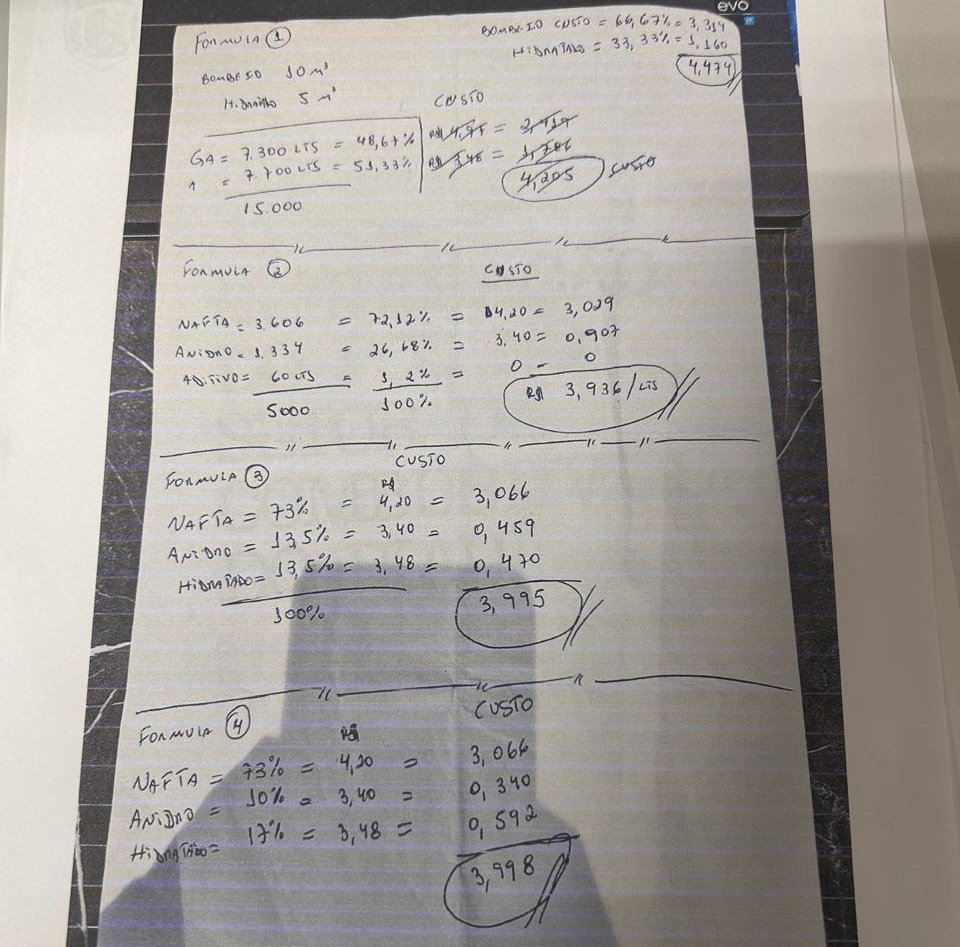 evo
FORMULA 1
BOMBEIO CUSTO = 66,67% = 3,314
HIDRATADO = 33,33% = 1,160
4,474
BOMBEIO 10 m³
HIDRATADO 5 m³
CUSTO
GA = 7.300 LTS = 48,67% R$ 4,97 = 2,419
= 7.700 LTS = 51,33% R$ 3,48 = 1,786
15.000
4,205 CUSTO
FORMULA 2
CUSTO
NAFTA = 3.606 = 72,12% = 4,20 = 3,029
ANIDRO = 1.334 = 26,68% = 3,40 = 0,907
ADITIVO = 60 LTS = 1,2% = 0 = 0
5000 100% R$ 3,936/LTS
FORMULA 3
CUSTO
R$
NAFTA = 73% = 4,20 = 3,066
ANIDRO = 13,5% = 3,40 = 0,459
HIDRATADO = 13,5% = 3,48 = 0,470
100% 3,995
FORMULA 4
R$ CUSTO
NAFTA = 73% = 4,20 = 3,066
ANIDRO = 10% = 3,40 = 0,340
HIDRATADO = 17% = 3,48 = 0,592
3,998